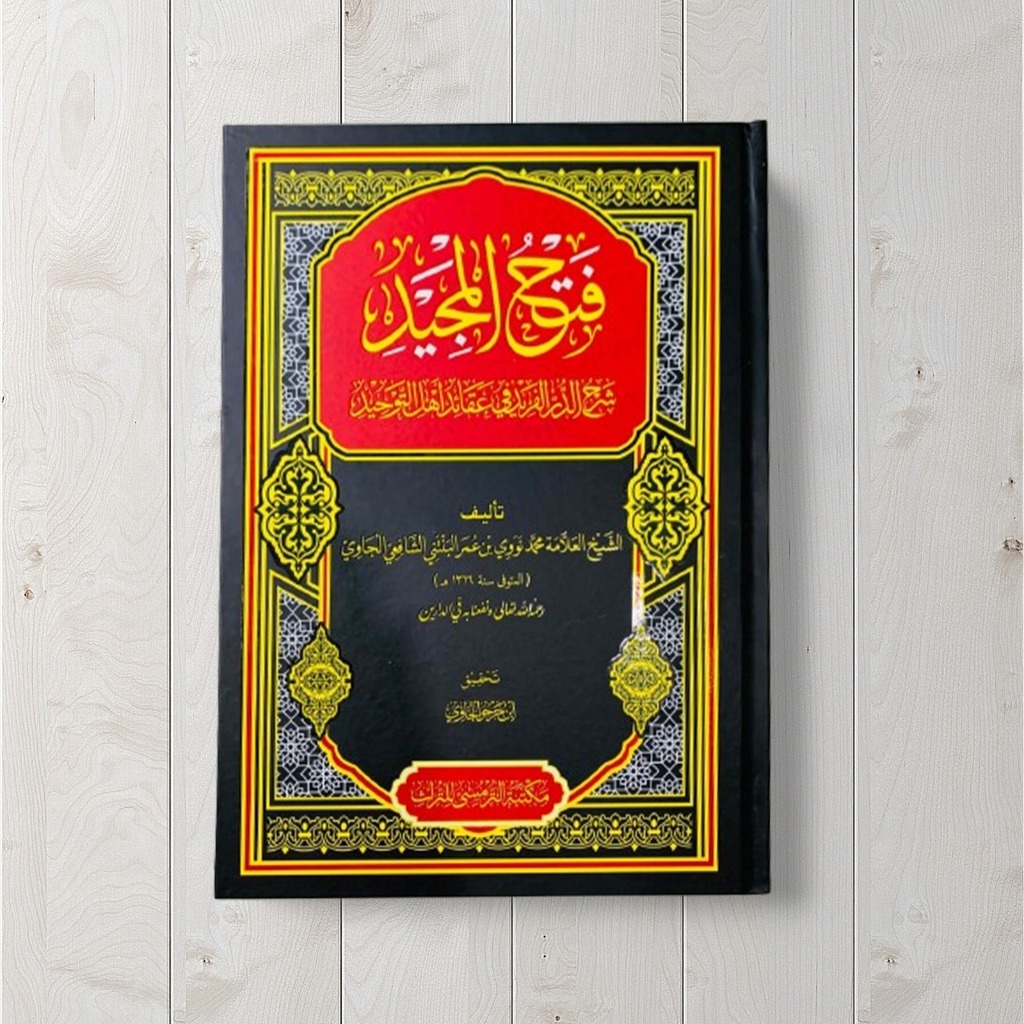 فَتْحُ المَجِيْدِ
شَرْحُ الدُّرِّ الفَرِيْدِ فِي عَقَائِدِ أَهْلِ التَّوْحِيْدِ
تأليف
الشَّيْخِ العَلَّامَة مُحَمَّد نَوَوِي بْنِ عُمَر البَنْتَنِي الشَّافِعِيّ الْجَاوِيّ
(المتوفى سنة ١٣٢٦ هـ)
رحمه الله تعالى ونفعنا به في الدارين
تَحْقِيْق
ابن حرجو الجاوي
مَكْتَبَة التُّرْمُسِي لِلتُّرَاث